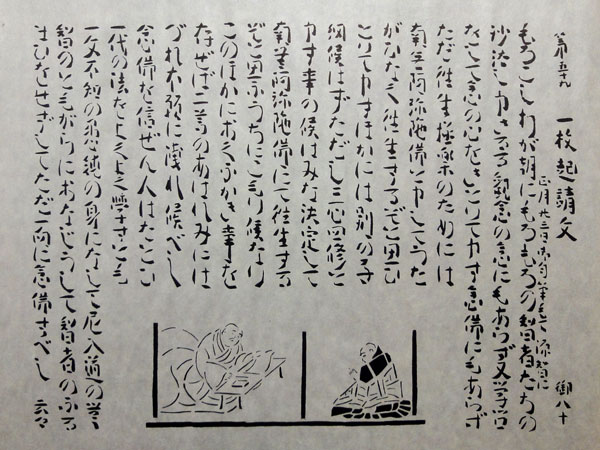 一枚起請文
正月廿三日御自筆
源智に
御八十
もろこしわが朝にもろもろの智者たちの
沙汰し申さるる観念の念にもあらず又学问
をして念の心をさとりて申す念佛にもあらず
ただ往生極楽のためには
南無阿弥陀佛と申してうた
がひなく往生するぞと思ひ
とりて申すほかには別の子さ
細候はずただし三心四修と
申す事の候はみな決定して
南無阿弥陀佛にて往生する
ぞと思ふうちにこもり候なり
このほかにおくふかき事を
存ぜば二尊のあはれみには
づれ本願に漏れ候べし
念佛を信ぜん人はたとひ
一代の法をよくよく學すとも
一文不知の愚鈍の身になして尼入道の無
智のともがらにおなじうして智者のふる
まひをせずしてただ一向に念佛すべし 云々